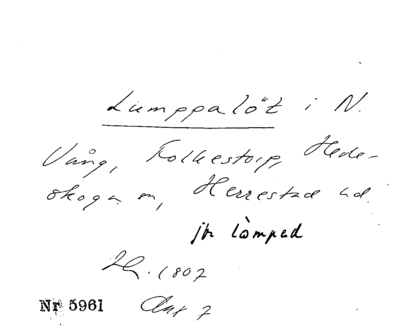 Lumppalöt i N.
Vång, Folkestorp, Hede-
skoga m, Herrestad hd.
jfr lòmpad
H. 1807
Nr 5961